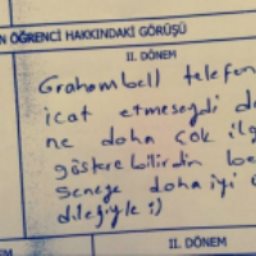 N ÖĞRENCİ HAKKINDAKİ GÖRÜŞÜ
II. DÖNEM
Grahambell telefon
icat etmeseydi de
ne daha çok ilg
gösterebilirdin
Seneye daha iyi
dileğiyle :)
II. DÖNEM